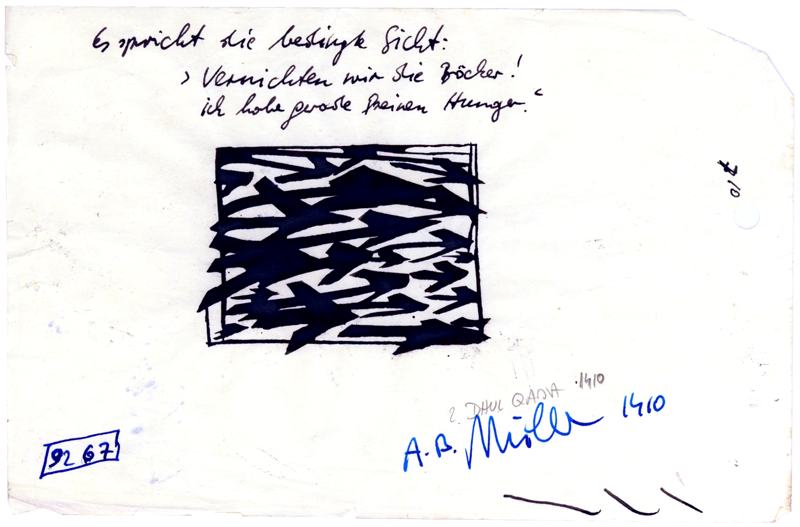 Es spricht die bedingte Sicht:
› Vernichten wir die Bäcker!
ich habe gerade keinen Hunger.“
2. DHUL QADA 1410
A.B. Müller 1410
92 67